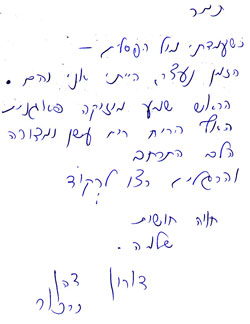 תמר
כשעמדתי מול הפסלים –
הזמן נעצר, הייתי אני והם.
הראש שמע מוזיקה פאגנית
האף הריח ריח עשן ומדורה
הלב התרחב
והרגליים רצו לרקוד
חוויה חושית
שלמה.
דורון